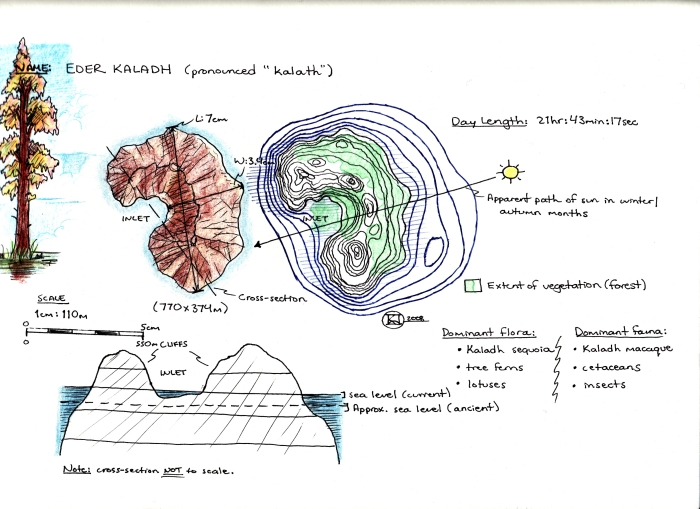 NAME: EDER KALADH (pronounced "kalath")
L:7cm
Day Length: 21hr:43min:17sec
INLET
INLET
Apparent path of sun in winter/
autumn months
Cross-section
(770x374m)
Extent of vegetation (forest)
SCALE
1cm:110m
5cm
0
0
2008
550m CLIFFS
INLET
sea level (current)
Approx. sea level (ancient)
Dominant flora:
• Kaladh sequoia
• tree ferns
• lotuses
Dominant fauna:
• Kaladh macaque
• cetaceans
• insects
Note: cross-section NOT to scale.